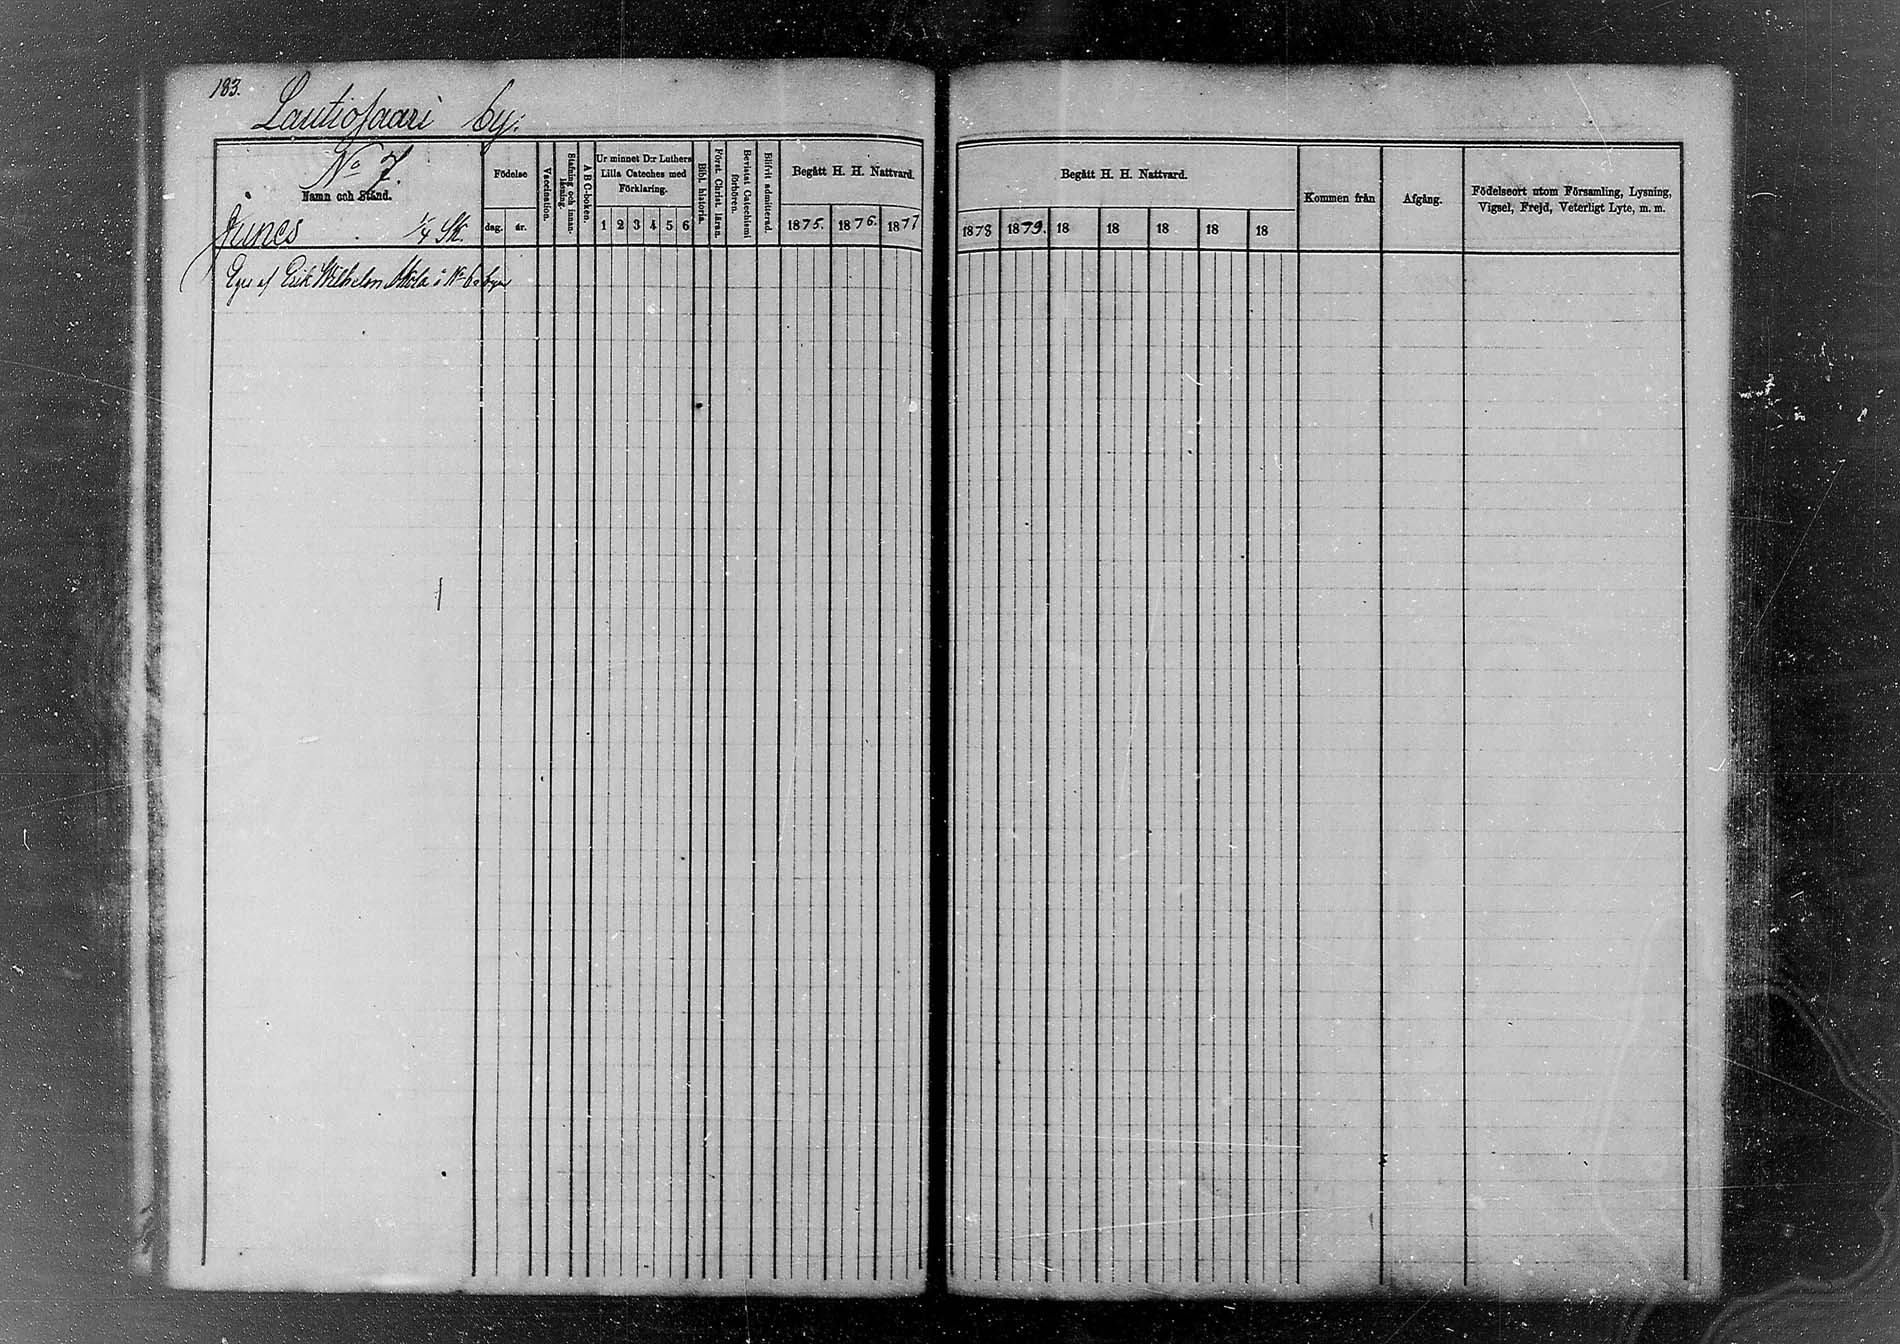 183.
Lautiosaari by:
No 7.
Namn och Stånd.
Junes 1/4 Sk.
Födelse
dag. år.
Vaccination.
Stafning och innan-läsning.
A B C-boken.
Ur minnet D:r Luthers Lilla Cateches med Förklaring.
1 2 3 4 5 6
Bibl. historia.
Först. Christ. läran.
Bevistat Catechismi förhören.
Blifvit admitterad.
Begått H. H. Nattvard.
1875. 1876. 1877
Eges af Erik Wilhelm i No 6 a byn
Begått H. H. Nattvard.
1878 1879. 18 18 18 18 18
Kommen från
Afgång.
Födelseort utom Församling, Lysning,
Vigsel, Frejd, Veterligt Lyte, m. m.